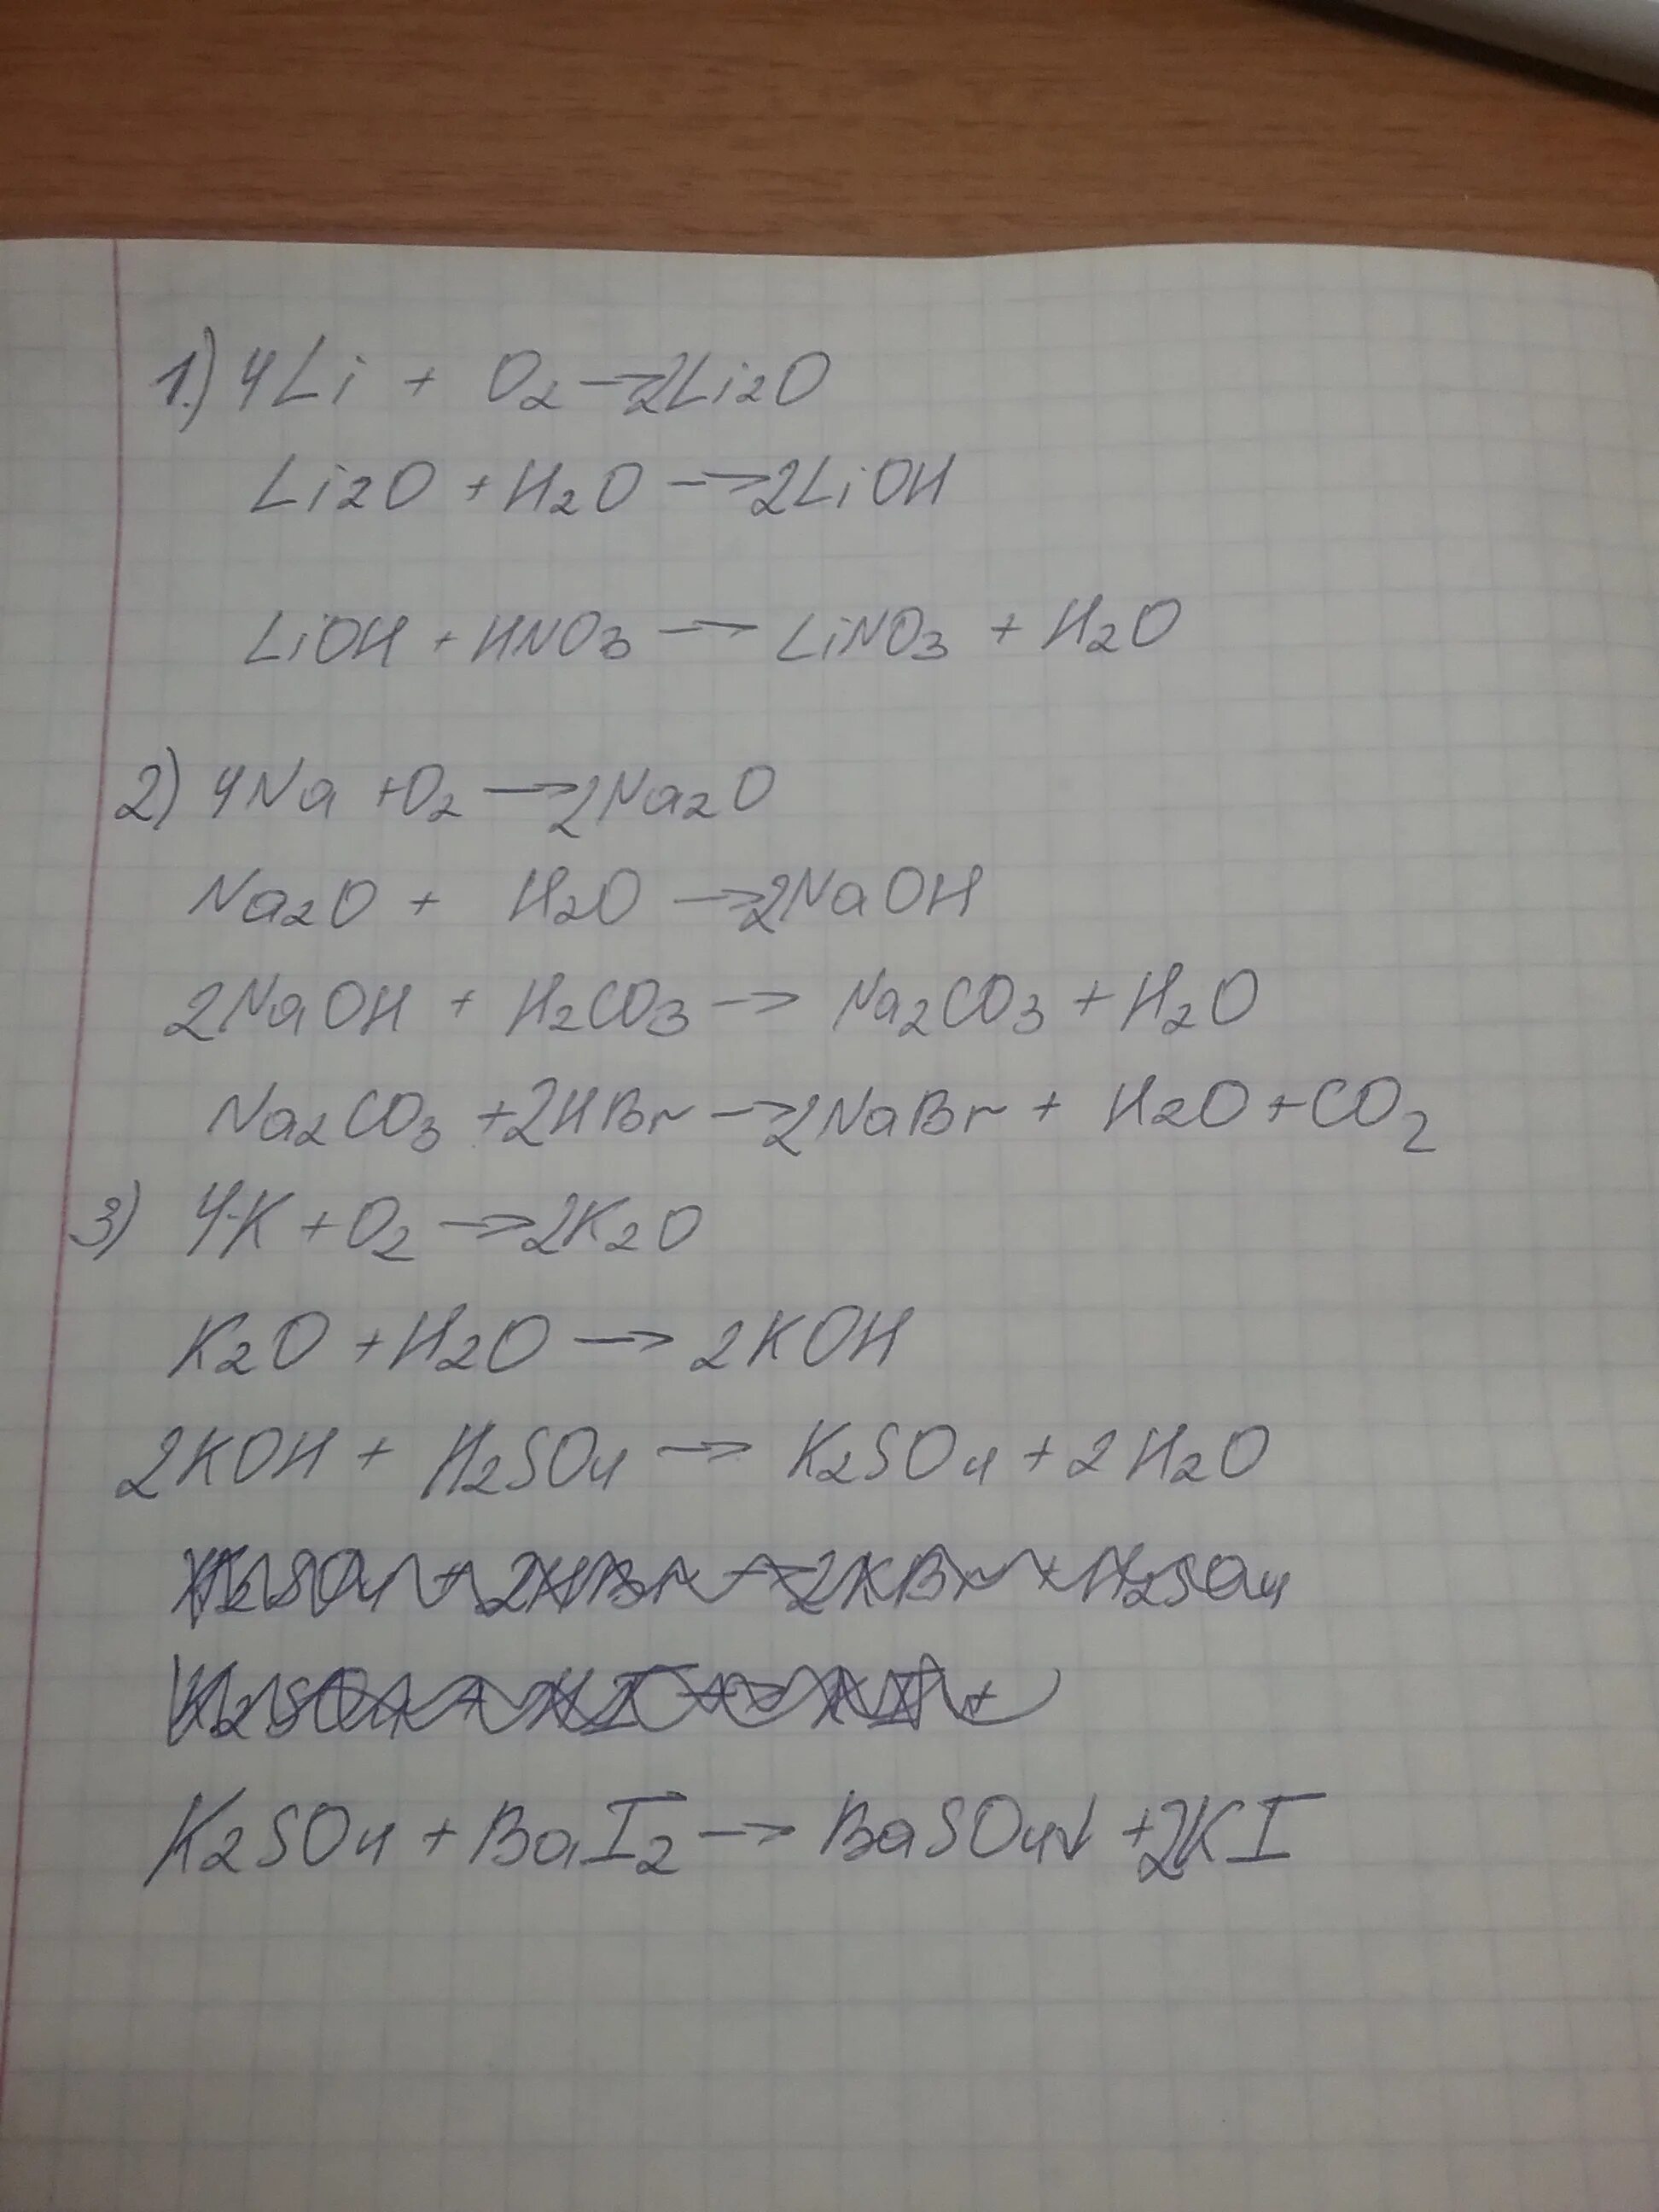 1.) 4Li + O2 → 2Li2O
Li2O + H2O → 2LiOH
LiOH + HNO3 → LiNO3 + H2O
2) 4Na + O2 → 2Na2O
Na2O + H2O → 2NaOH
2NaOH + H2CO3 → Na2CO3 + H2O
Na2CO3 + 2HBr → 2NaBr + H2O + CO2
3) 4K + O2 → 2K2O
K2O + H2O → 2KOH
2KOH + H2SO4 → K2SO4 + 2H2O
K2SO4 + 2HBr → 2KBr + H2SO4
K2SO4 + BaI2 → BaSO4↓ + 2KI